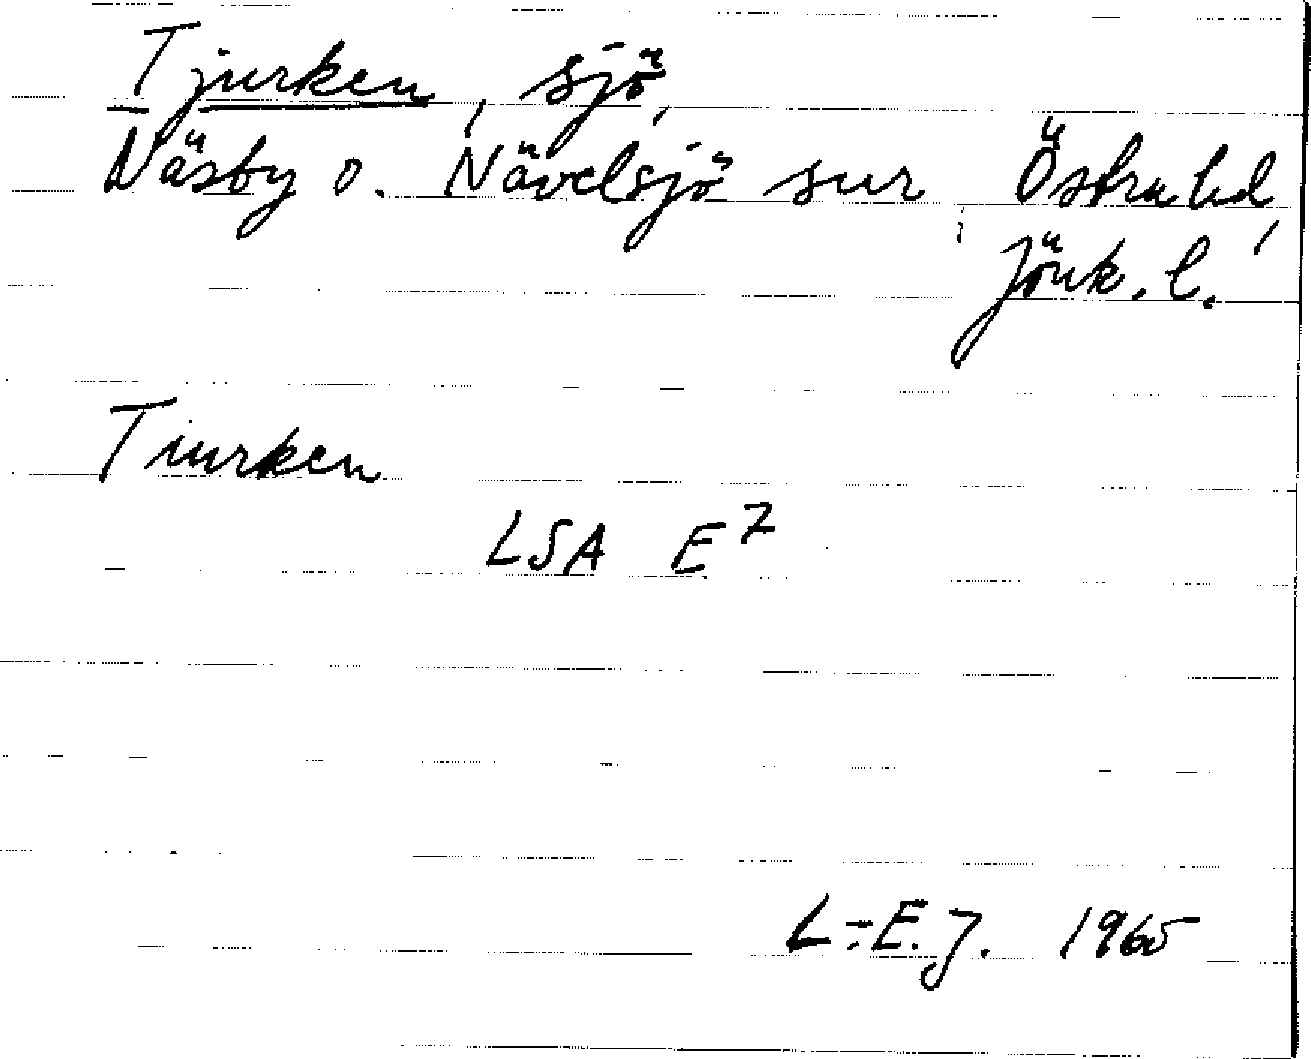 Tjurken, sjö,
Näsby o. Nävelsjö snr, Östra hd,
Jönk. l.
Tiurken
LSA E7
L-E.J. 1965